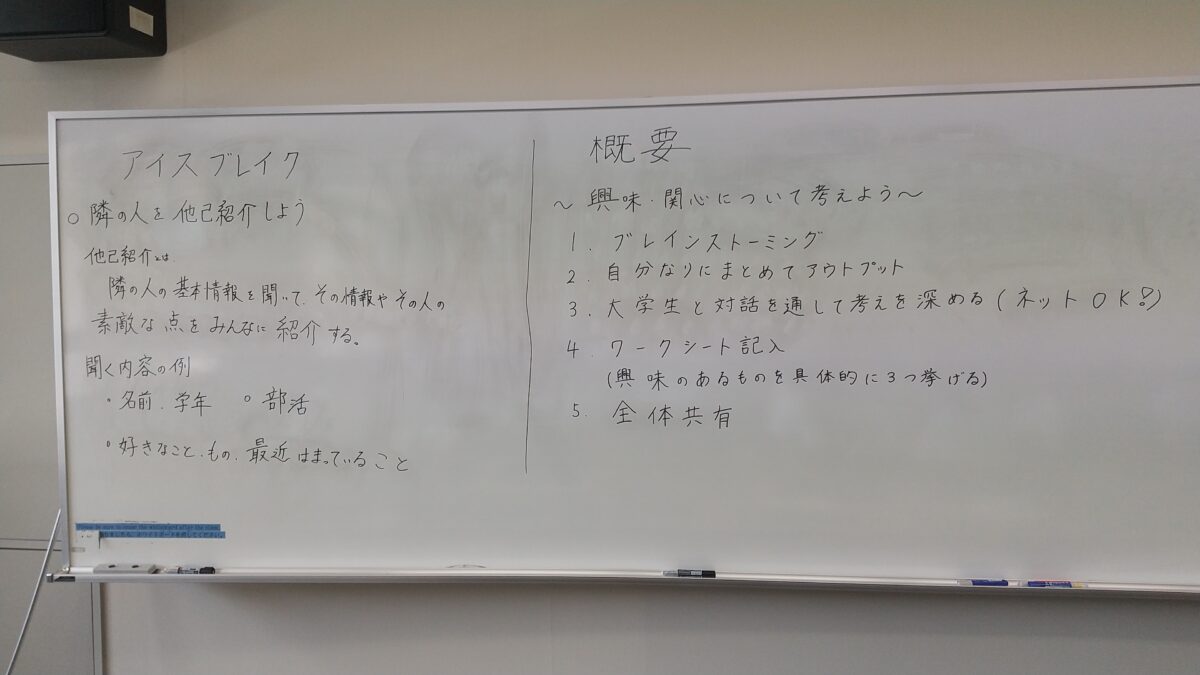 アイスブレイク
○ 隣の人を他己紹介しよう
他己紹介とは、
隣の人の基本情報を聞いて、その情報やその人の
素敵な点をみんなに紹介する。
聞く内容の例
・名前、学年 ・部活
・好きなこと、もの、最近はまっていること
概要
～興味・関心について考えよう～
1. ブレインストーミング
2. 自分なりにまとめてアウトプット
3. 大学生と対話を通して考えを深める(ネットOK!)
4. ワークシート記入
(興味のあるものを具体的に3つ挙げる)
5. 全体共有